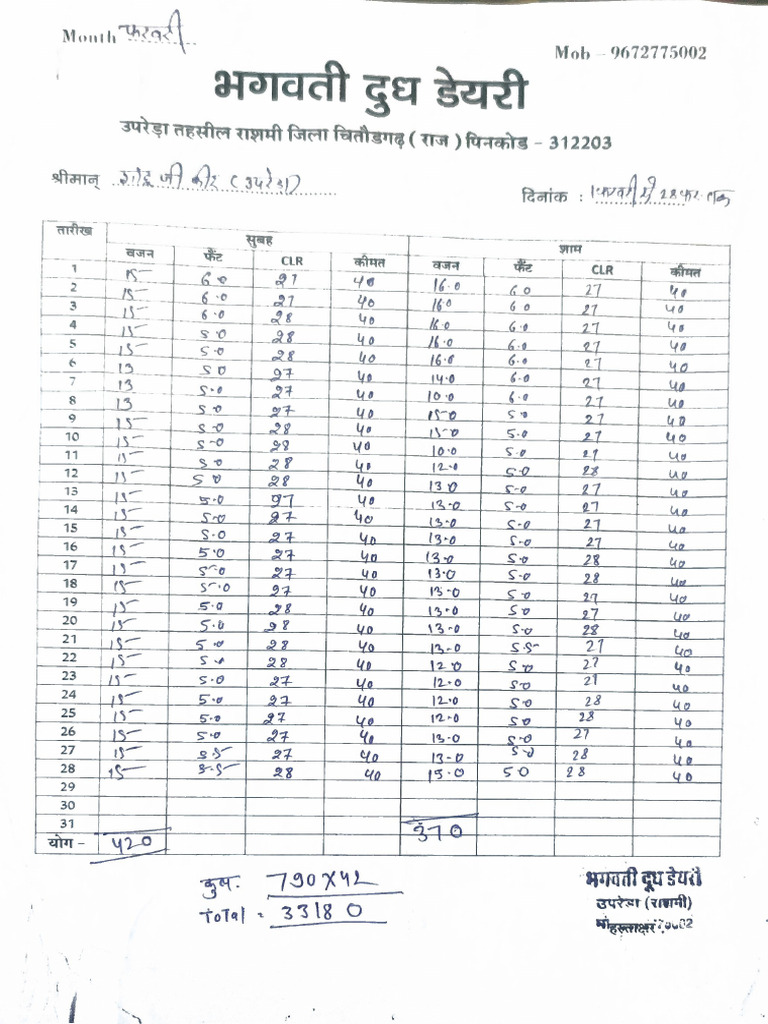 Month फरवरी
Mob - 9672775002
भगवती दुध डेयरी
उपरेड़ा तहसील राशमी जिला चितौडगढ़ ( राज ) पिनकोड - 312203
श्रीमान् जी कीर (उपरेडा)
दिनांक : 28 तक
तारीख सुबह शाम
वजन फैंट CLR कीमत वजन फैंट CLR कीमत
1 15 6.0 27 40 16.0 60 27 40
2 15 6.0 27 40 16.0 60 27 40
3 15 6.0 28 40 16.0 6.0 27 40
4 15 5.0 28 40 16.0 6.0 27 40
5 15 5.0 28 40 16.0 6.0 27 40
6 13 50 27 40 14.0 6.0 27 40
7 13 5.0 27 40 10.0 6.0 27 40
8 13 5.0 27 40 15.0 5.0 27 40
9 15 5.0 28 40 15.0 5.0 27 40
10 15 5.0 28 40 10.0 5.0 27 40
11 15 50 28 40 12.0 5.0 28 40
12 15 50 28 40 13.0 5.0 27 40
13 15 5.0 27 40 13.0 5.0 27 40
14 15 5.0 27 40 13.0 5.0 27 40
15 15 5.0 27 40 13.0 5.0 27 40
16 15 5.0 27 40 13.0 50 28 40
17 15 5.0 27 40 13.0 5.0 28 40
18 15 5.0 27 40 13.0 50 27 40
19 15 5.0 28 40 13.0 50 27 40
20 15 5.0 28 40 13.0 50 28 40
21 15 5.0 28 40 13.0 5.5 27 40
22 15 5.0 28 40 12.0 50 27 40
23 15 5.0 27 40 12.0 50 27 40
24 15 5.0 27 40 12.0 50 28 40
25 15 5.0 27 40 12.0 50 28 40
26 15 5.0 27 40 13.0 5.0 27 40
27 15 5.5 27 40 13.0 5.0 28 40
28 15 5.5 28 40 15.0 50 28 40
29
30
31
योग - 420 370
कुल: 790X42
ToTal = 33180
भगवती दूध डेयरी
उपरेडा (राशमी)
हस्ताक्षर